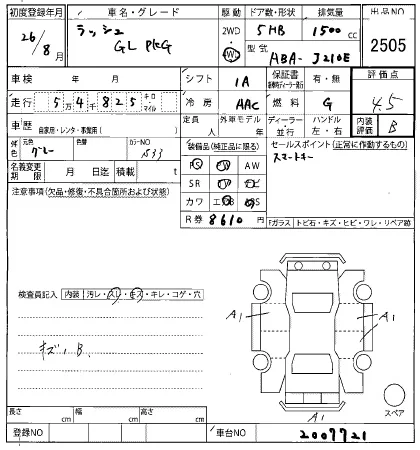 初度登録年月 車名・グレード 駆動 ドア数・形状 排気量 出品NO
26/8月 ラッシュ GL PKG 2WD 4WD 5HB 1500cc 2505
型式 ABA-J210E
車検 年 月 シフト IA 保証書 有・無 評価点
走行 5万4千825 キロ・マイル 冷房 AAC 燃料 G 4.5
車歴 自家用・レンタ・事業用( ) 定員 人 外車モデル 年 ディーラー 並行 ハンドル 左・右 内装評価 B
色 元色 グレー 色替 カラーNO S33
装備品(純正品に限る) セールスポイント(正常に作動するもの)
スマートキー
名義変更期限 月 日迄 積載 t
PS PW AW
SR ナビ
カワ エB BS
R券 8610円
注意事項(欠品・修復・不具合箇所および状態)
Fガラス トビ石・キズ・ヒビ・ワレ・リペア跡
検査員記入 内装 汚レ・スレ・キズ・キレ・コゲ・穴
キズ, B.
A1
A1
A1
スペア
長さ cm 幅 cm 高さ cm
登録NO 車台NO 2007721